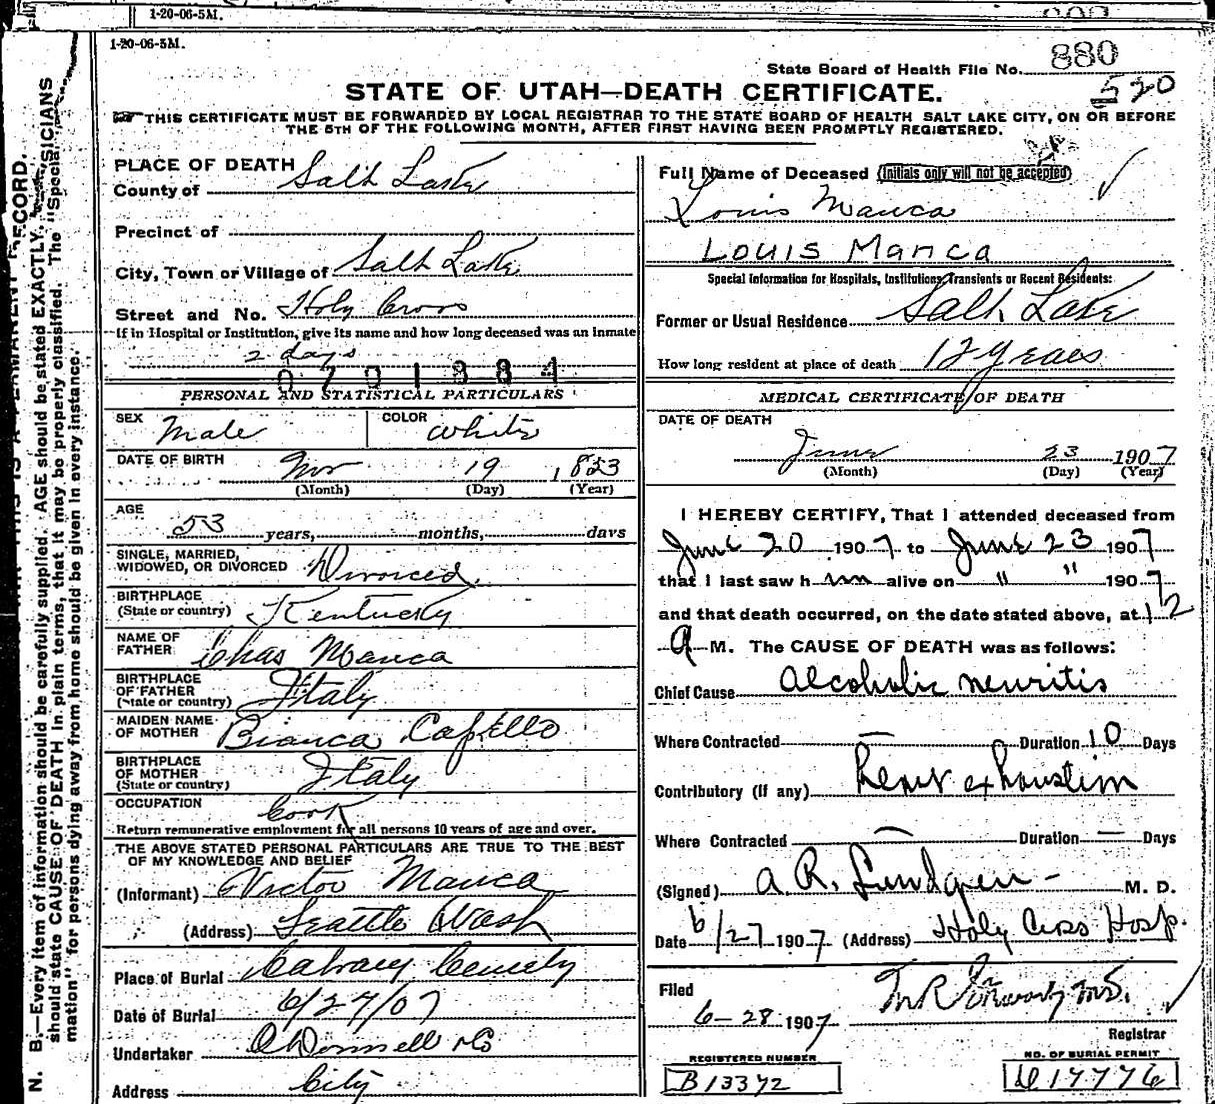 1-20-06-5M.
1-20-06-5M.
State Board of Health File No. 880
520
STATE OF UTAH—DEATH CERTIFICATE.
THIS CERTIFICATE MUST BE FORWARDED BY LOCAL REGISTRAR TO THE STATE BOARD OF HEALTH SALT LAKE CITY, ON OR BEFORE
THE 5TH OF THE FOLLOWING MONTH, AFTER FIRST HAVING BEEN PROMPTLY REGISTERED.
PLACE OF DEATH
County of Salt Lake
Precinct of
City, Town or Village of Salt Lake
Street and No. Holy Cross
If in Hospital or Institution, give its name and how long deceased was an inmate
2 days
0701884
PERSONAL AND STATISTICAL PARTICULARS
SEX Male COLOR White
DATE OF BIRTH Nov 19 1853
(Month) (Day) (Year)
AGE
53 years, months, days
SINGLE, MARRIED,
WIDOWED, OR DIVORCED Divorced.
BIRTHPLACE
(State or country) Kentucky
NAME OF
FATHER Chas Manca
BIRTHPLACE
OF FATHER
(State or country) Italy
MAIDEN NAME
OF MOTHER Bianca Capello
BIRTHPLACE
OF MOTHER
(State or country) Italy
OCCUPATION Cook
Return remunerative employment for all persons 10 years of age and over.
THE ABOVE STATED PERSONAL PARTICULARS ARE TRUE TO THE BEST
OF MY KNOWLEDGE AND BELIEF
(Informant) Victor Manca
(Address) Seattle Wash
Place of Burial Calvary Cemety
Date of Burial 6/27/07
Undertaker O'Donnell & Co
Address City
Full Name of Deceased (Initials only will not be accepted)
Louis Manca
LOUIS Manca
Special Information for Hospitals, Institutions, Transients or Recent Residents:
Former or Usual Residence Salt Lake
How long resident at place of death 12 years
MEDICAL CERTIFICATE OF DEATH
DATE OF DEATH
June 23 1907
(Month) (Day) (Year)
I HEREBY CERTIFY, That I attended deceased from
June 20 1907 to June 23 1907
that I last saw h im alive on " " 1907
and that death occurred, on the date stated above, at 12
A M. The CAUSE OF DEATH was as follows:
Chief Cause alcoholic neuritis
Where Contracted — Duration 10 Days
Contributory (if any) exhaustion
Where Contracted — Duration — Days
(Signed) A. R. Lundgren - M. D.
Date 6/27 1907 (Address) Holy Cross Hosp.
Filed
6-28 1907
Registrar
REGISTERED NUMBER
B13372
NO. OF BURIAL PERMIT
17776
N. B.—Every item of information should be carefully supplied. AGE should be stated EXACTLY. PHYSICIANS
should state CAUSE OF DEATH in plain terms, that it may be properly classified. The "Special
mation" for persons dying away from home should be given in every instance.
THIS IS A PERMANENT RECORD.